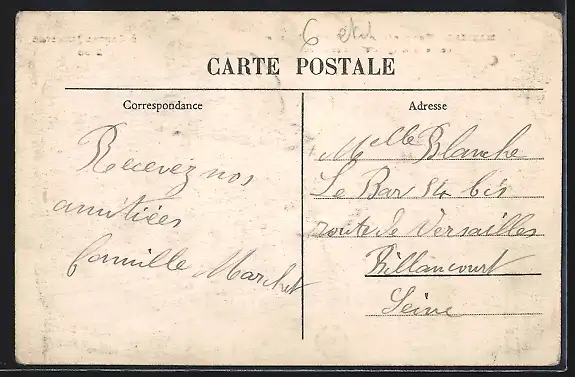 CARTE POSTALE
Correspondance
Recevez nos
amitiées
famille Marchet
Adresse
Melle Blanche
Le Bar 84 bis
route de Versailles
Billancourt
Seine